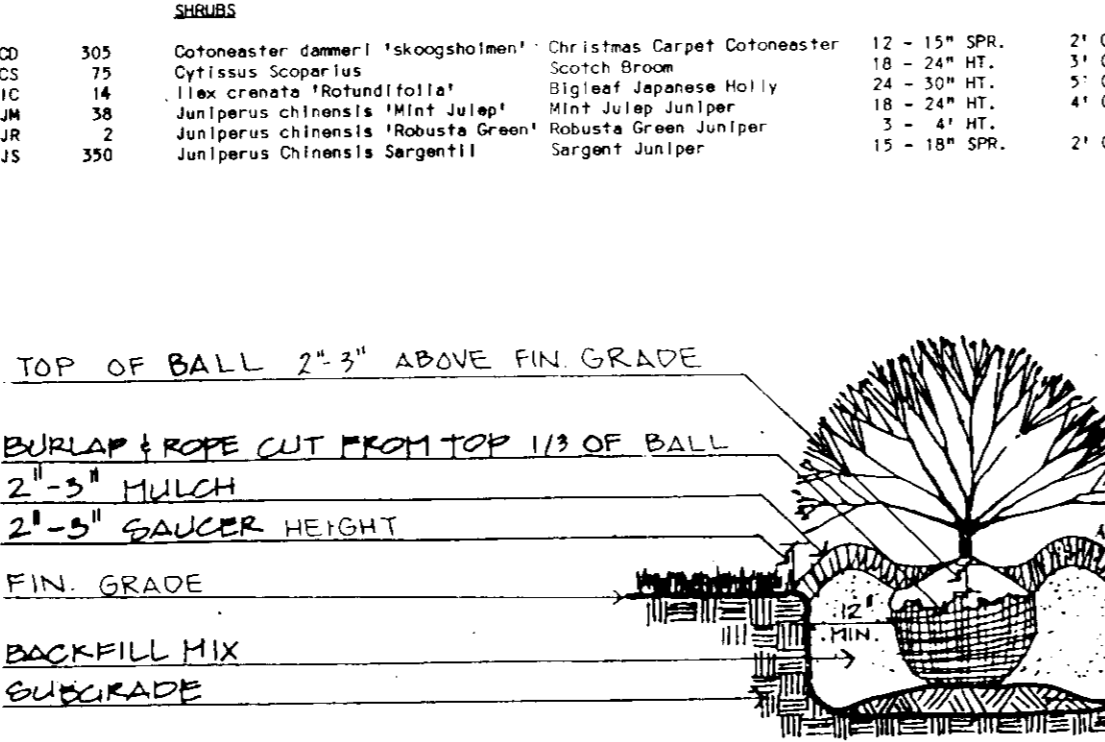 SHRUBS
CD 305 Cotoneaster dammeri 'skoogsholmen' Christmas Carpet Cotoneaster 12 - 15" SPR. 2'
CS 75 Cytissus Scoparius Scotch Broom 18 - 24" HT. 3'
IC 14 Ilex crenata 'Rotundifolia' Bigleaf Japanese Holly 24 - 30" HT. 5'
JM 38 Juniperus chinensis 'Mint Julep' Mint Julep Juniper 18 - 24" HT. 4'
JR 2 Juniperus chinensis 'Robusta Green' Robusta Green Juniper 3 - 4' HT.
JS 350 Juniperus Chinensis Sargentii Sargent Juniper 15 - 18" SPR. 2'
TOP OF BALL 2"-3" ABOVE FIN. GRADE
BURLAP & ROPE CUT FROM TOP 1/3 OF BALL
2"-3" MULCH
2"-3" SAUCER HEIGHT
FIN. GRADE
12"
MIN.
BACKFILL MIX
SUBGRADE